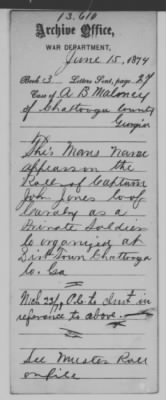 13.610
Archive Office,
WAR DEPARTMENT,
June 15, 1874
Book 3 Letters Sent, page 27
Case of A B Maloney
of Chattooga County
Georgia
This Mans Name
appears on the
Roll of Captain
John Jones Co of
Cavalry as a
Private Soldier
Co organized at
Dirt Town Chattooga
Co. Ga
reference to above.
See Muster Roll
on file